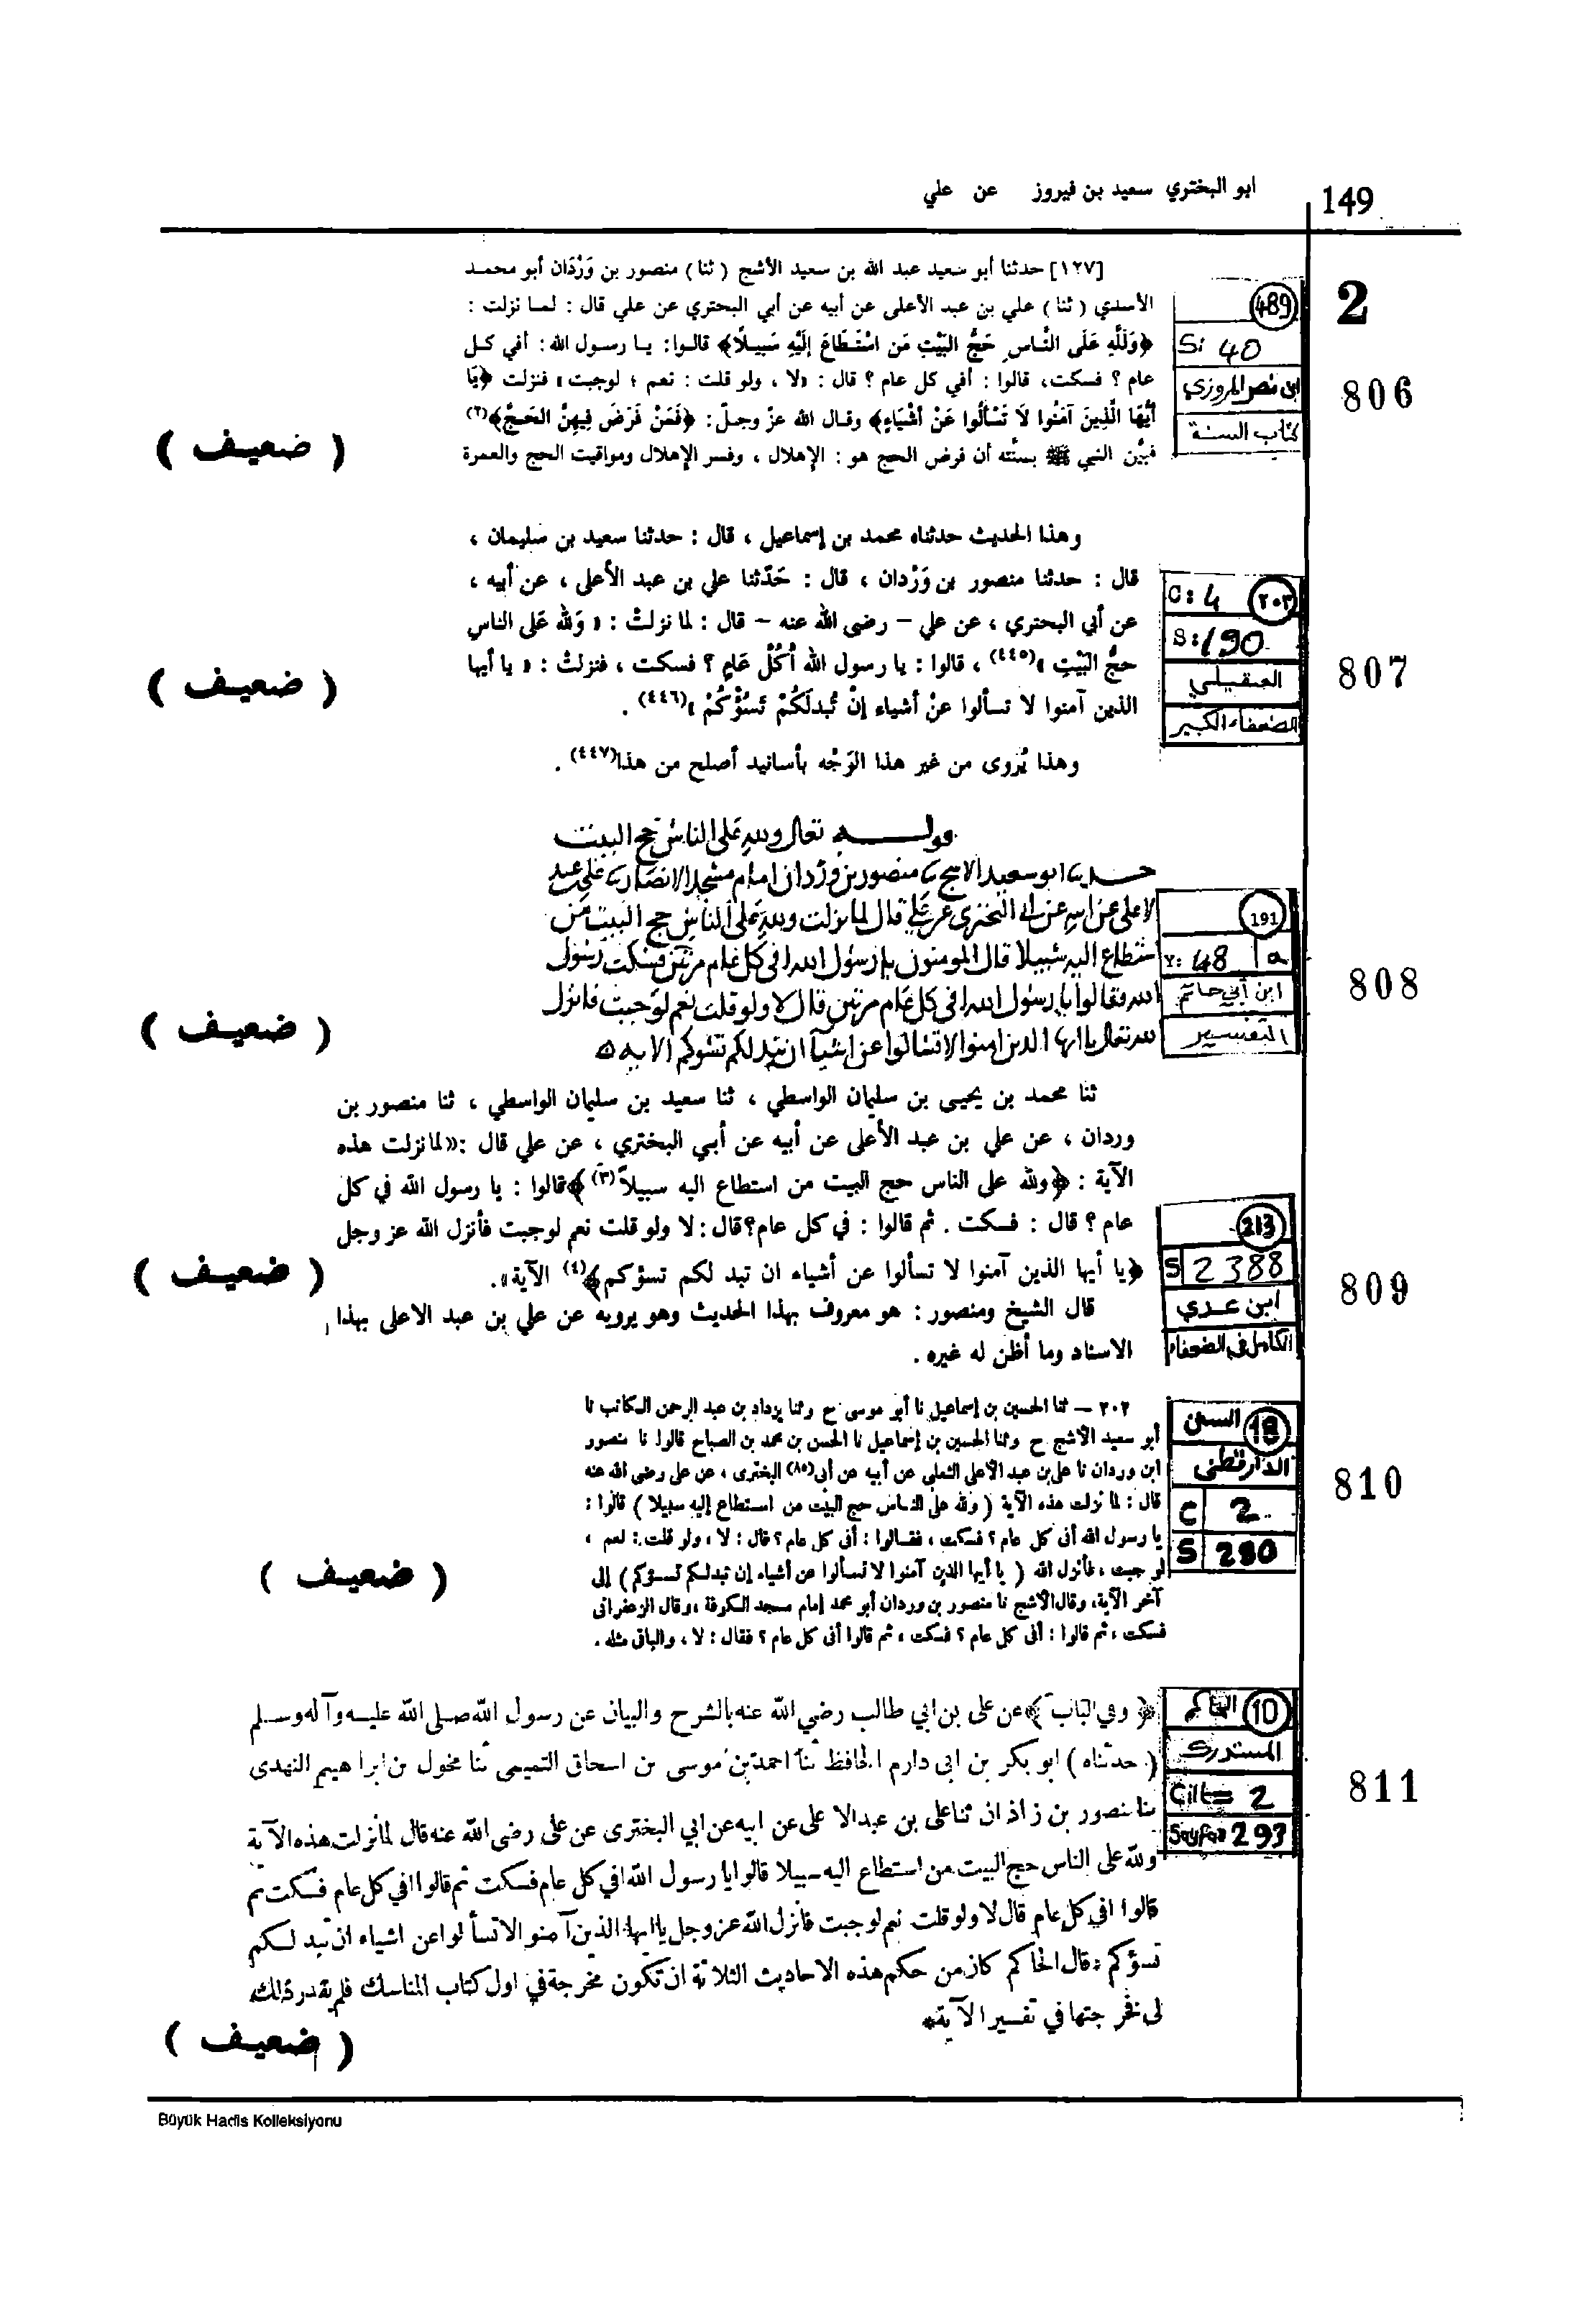 149
ابو البختري سعيد بن فيروز عن علي
2
[١٢٧] حدثنا أبو سعيد عبد الله بن سعيد الأشج ( ثنا ) منصور بن وَرْدَان أبو محمد
الأسدي ( ثنا ) علي بن عبد الأعلى عن أبيه عن أبي البحتري عن علي قال : لما نزلت :
﴿وَلِلَّهِ عَلَى النَّاسِ حَجُّ البَيْتِ مَنِ اسْتَطَاعَ إِلَيْهِ سَبِيلًا﴾ قالوا: يا رسول الله : أفي كل
عام ؟ فسكت، قالوا : أفي كل عام ؟ قال : «لا ، ولو قلت : نعم ؛ لوجبت» فنزلت ﴿يَا
أَيُّهَا الَّذِينَ آمَنُوا لَا تَسْأَلُوا عَنْ أَشْيَاءَ﴾ وقال الله عزّ وجلّ: ﴿فَمَنْ فَرَضَ فِيهِنَّ الحَجَّ﴾(٢)
فبيَّن النبي ﷺ بسنَّته أن فرض الحج هو : الإهلال ، وفسر الإهلال ومواقيت الحج والعمرة
489
S: 40
ابن نصر المروزي
كتاب السنة
806
( ضعيف )
وهذا الحديث حدثناه محمد بن إسماعيل ، قال : حدثنا سعيد بن سليمان ،
قال : حدثنا منصور بن وَرْدان ، قال : حَدّثنا علي بن عبد الأعلى ، عن أبيه ،
عن أبي البحتري ، عن علي – رضى الله عنه – قال : لما نزلتْ : « وَلله عَلى الناسِ
حجُّ البَيْتِ »(٤٤٥) ، قالوا : يا رسول الله أكُلّ عَامٍ ؟ فسكت ، فنزلتْ : « يا أيها
الذين آمنوا لا تسألوا عنْ أشياء إنْ تُبدلَكُمْ تَسُؤْكُمْ »(٤٤٦) .
وهذا يُروى من غير هذا الوَجْه بأسانيد أصلح من هذا(٤٤٧) .
C: 4 ٢٠٣
S: 190
العقيلي
الضعفاء الكبير
807
( ضعيف )
قوله تعالى ولله على الناس حج البيت
حدثنا ابو سعيد الاشج ثنا منصور بن وردان امام مسجد الانصار ثنا علي عبد
الاعلى عن ابيه عن ابي البختري عن علي قال لما نزلت ولله على الناس حج البيت من
استطاع اليه سبيلا قال المومنون يا رسول الله افي كل عام مرتين فسكت رسول
الله فقالوا يا رسول الله افي كل عام مرتين قال لا ولو قلت نعم لوجبت فانزل
الله تعالى يا ايها الذين امنوا لا تسالوا عن اشيآ ان تبد لكم تسوكم الايه
191
Y: 48 a
ابن أبي حاتم
التفسير
808
( ضعيف )
ثنا محمد بن يحيى بن سليمان الواسطي ، ثنا سعيد بن سليمان الواسطي ، ثنا منصور بن
وردان ، عن علي بن عبد الأعلى عن أبيه عن أبي البختري ، عن علي قال :«لما نزلت هذه
الآية : ﴿ولله على الناس حج البيت من استطاع اليه سبيلاً(٣)﴾قالوا : يا رسول الله في كل
عام ؟ قال : فسكت . ثم قالوا : في كل عام؟ قال : لا ولو قلت نعم لوجبت فأنزل الله عز وجل
﴿يا أيها الذين آمنوا لا تسألوا عن أشياء ان تبد لكم تسؤكم﴾(٤) الآية».
قال الشيخ ومنصور : هو معروف بهذا الحديث وهو يرويه عن علي بن عبد الاعلى بهذا
الاسناد وما أظن له غيره .
213
S 2388
ابن عدي
الكامل في الضعفاء
809
( ضعيف )
٢٠٢ — ثنا الحسين بن إسماعيل نا أبو موسى ح وثنا يزداد بن عبد الرحمن الكاتب نا
أبو سعيد الأشج ح وثنا الحسين بن إسماعيل نا الحسن بن محمد بن الصباح قالوا نا منصور
ابن وردان نا على بن عبد الأعلى الثعلبى عن أبيه عن أبى(٨٥) البخترى ، عن على رضى الله عنه
قال : لما نزلت هذه الآية ( ولله على الناس حج البيت من استطاع إليه سبيلا ) قالوا :
يا رسول الله أفى كل عام ؟ فسكت ، فقالوا : أفى كل عام ؟ قال : لا ، ولو قلت : نعم ،
لوجبت ، فأنزل الله ( يا أيها الذين آمنوا لا تسألوا عن أشياء إن تبدلكم تسؤكم ) إلى
آخر الآية، وقال الأشج نا منصور بن وردان أبو محمد إمام مسجد الكوفة ، وقال الزعفرانى
فسكت ، ثم قالوا : أفى كل عام ؟ فسكت ، ثم قالوا أفى كل عام ؟ فقال : لا ، والباقى مثله .
السنن 18
الدارقطنى
C 2
S 280
810
( ضعيف )
﴿ وفي الباب ﴾ عن على بن ابي طالب رضي الله عنه بالشرح والبيان عن رسول الله صلى الله عليه وآله وسلم
( حدثناه ) ابو بكر بن ابى دارم الحافظ ثنا احمد بن موسى بن اسحاق التميمى ثنا مخول بن ابراهيم النهدى
ثنا منصور بن زاذان ثنا على بن عبد الاعلى عن ابيه عن ابي البخترى عن على رضى الله عنه قال لما نزلت هذه الآية
ولله على الناس حج البيت من استطاع اليه سبيلا قالوا يا رسول الله افي كل عام فسكت ثم قالوا افي كل عام فسكت ثم
قالوا افي كل عام قال لا ولو قلت نعم لوجبت فانزل الله عز وجل يا ايها الذين آمنوا لا تسألوا عن اشياء ان تبد لكم
تسؤكم ؛ قال الحاكم كان من حكم هذه الاحاديث الثلاثة ان تكون مخرجة في اول كتاب المناسك فلم يقدر ذلك
لى فخرجتها في تفسير الآية *
الحاكم 10
المستدرك
Cilt= 2
Sayfa= 293
811
( ضعيف )
Büyük Hadis Kolleksiyonu